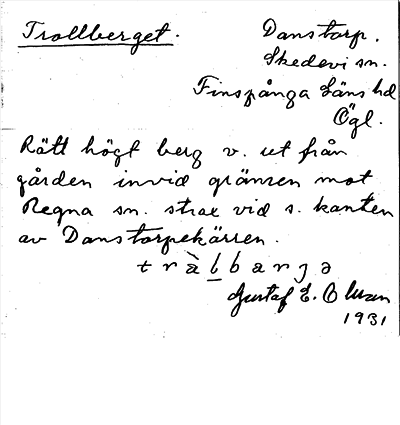 Trollberget.
Danstorp.
Skedevi sn.
Finspånga läns hd
Ögl.
Rätt högt berg v. ut från
gården invid gränsen mot
Regna sn. strax vid s. kanten
av Danstorpekärren.
Gustaf E. Olsson
1931